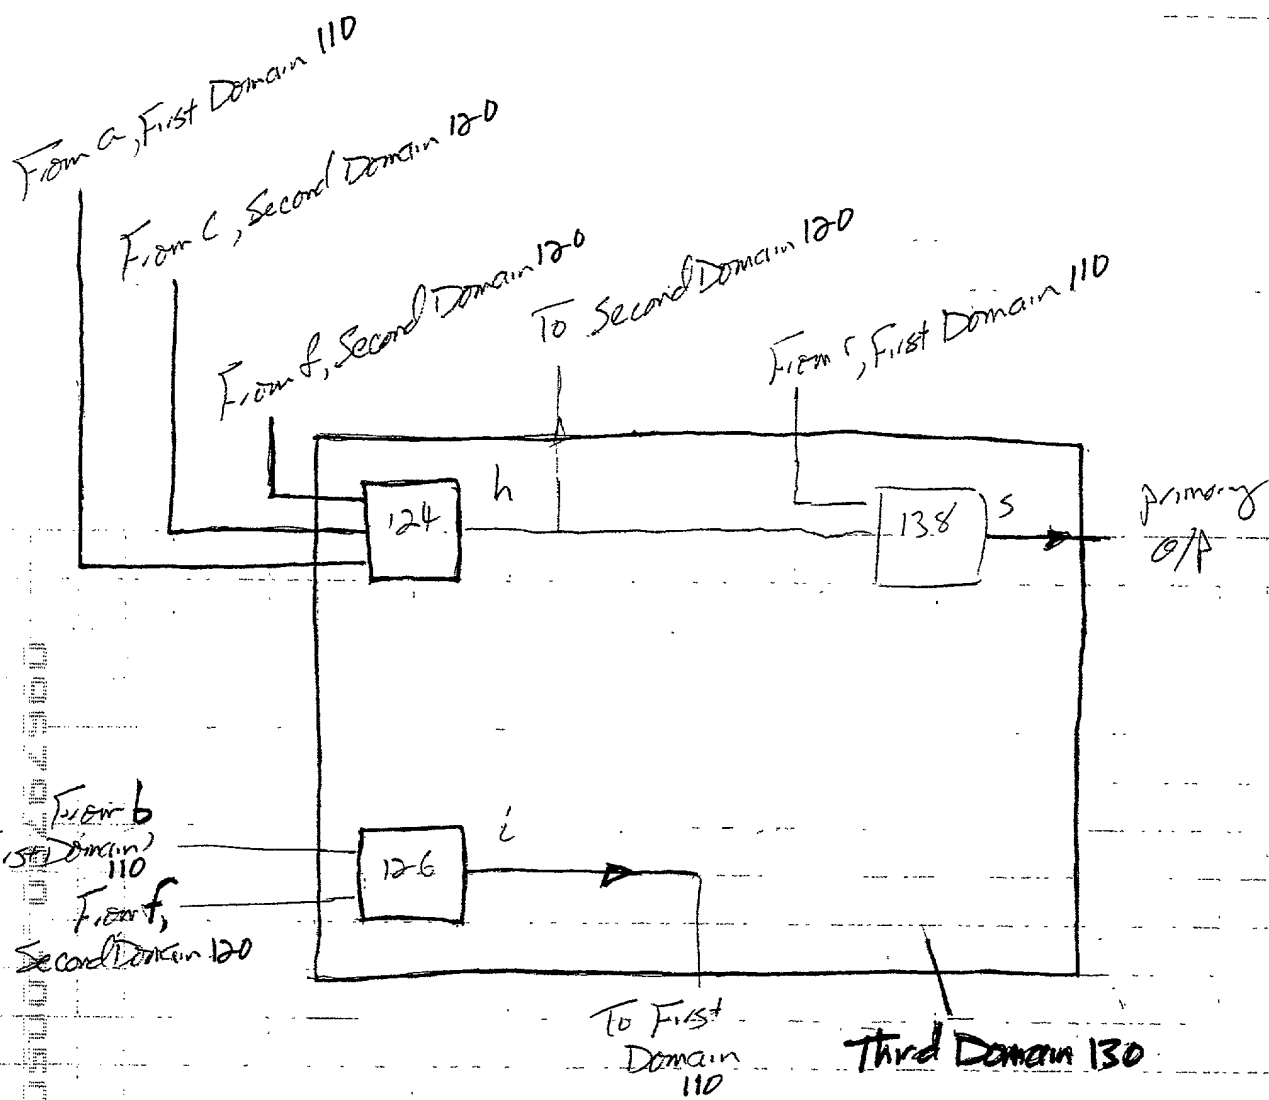 From a, First Domain 110
From c, Second Domain 120
From f, Second Domain 120
To Second Domain 120
From r, First Domain 110
h
124
138
s
primary
O/P
From b
irst Domain
110
i
126
From f,
Second Domain 120
To First
Domain
110
Third Domain 130